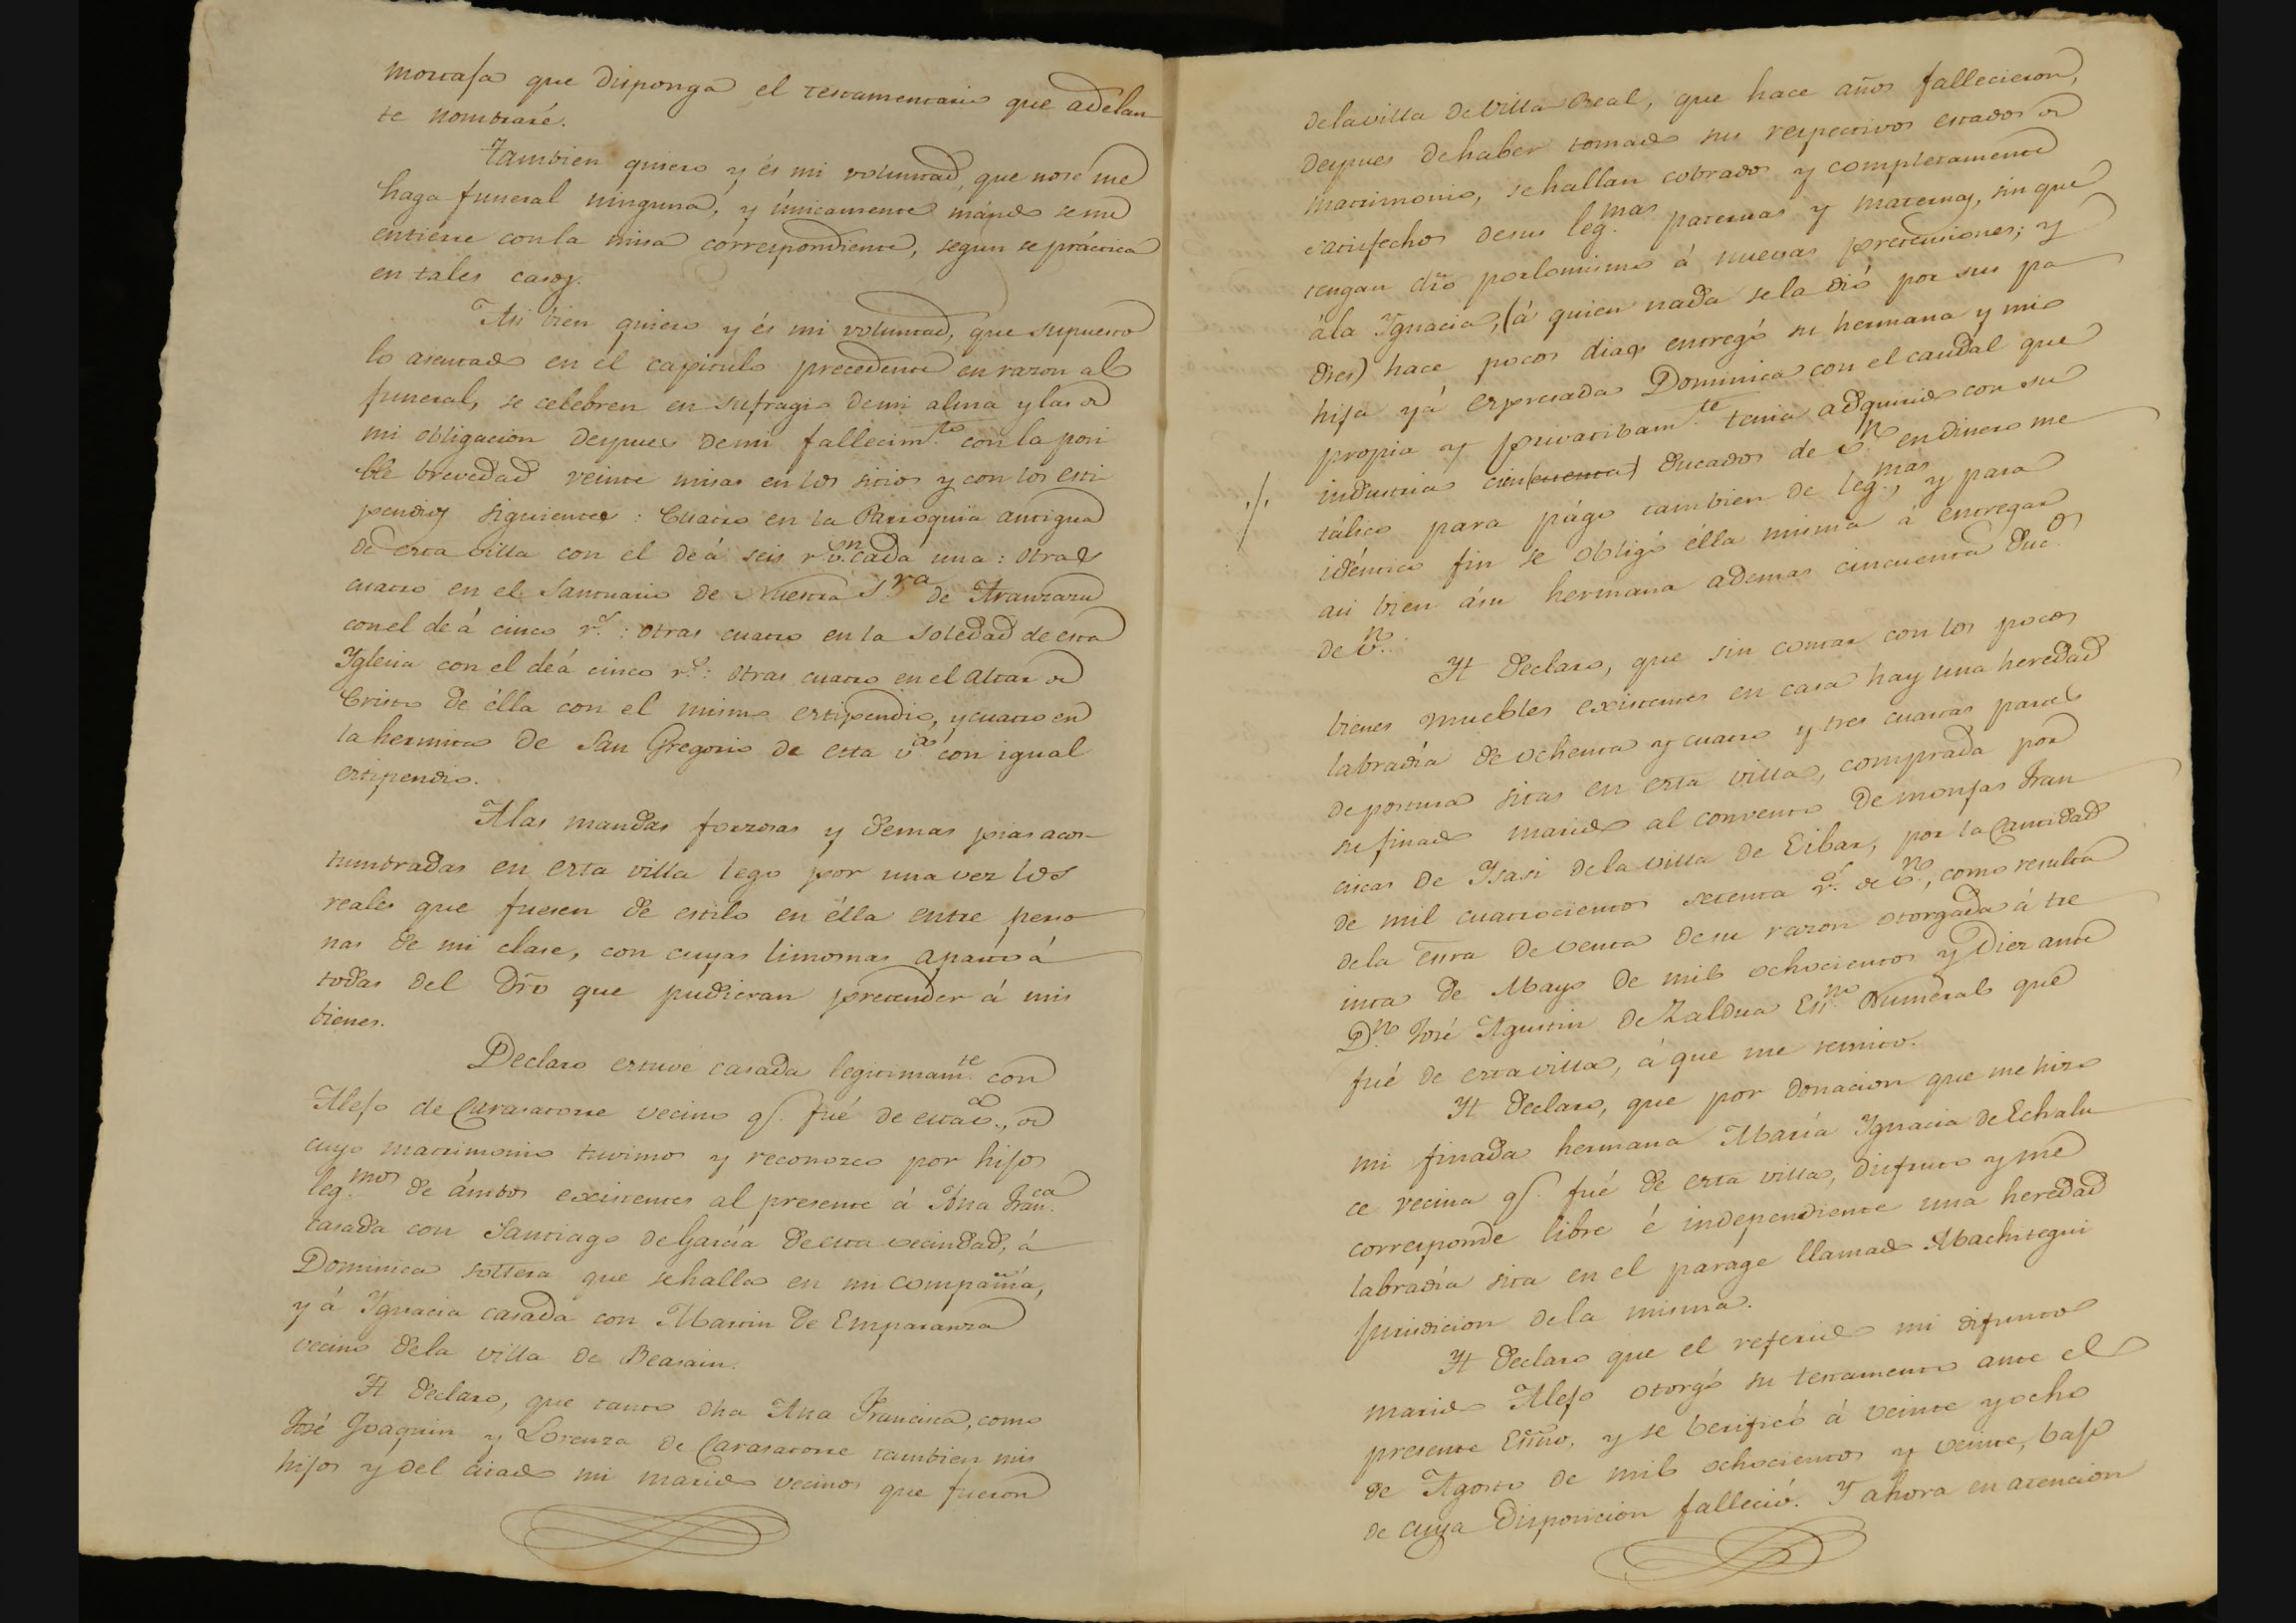 mortaja que disponga el testamentario que adelan
te nombraré.
Tambien quiero y és mi voluntad, que nose me
haga funeral ninguna, y únicamente mándo se me
entierre con la misa correspondiente, segun se práctica
en tales casos.
Asi bien quiero y és mi voluntad, que supuesto
lo asentado en el capitulo precedente en razon al
funeral, se celebren en sufragio de mi alma y las de
mi obligacion despues de mi fallecim.to con la posi
ble brevedad veinte misas en los sitios y con los esti
pendios siguientes: Cuatro en la Parroquia antigua
de esta villa con el de á seis r.s v.n cada una: otras
cuatro en el Santuario de Nuestra S.ra de Aranzazu
con el de á cinco r.s: otras cuatro en la Soledad de esta
Yglesia con el de á cinco r.s: otras cuatro en el altar de
Cristo de élla con el mismo estipendio, y cuatro en
la hermita de San Gregorio de esta v.a con igual
estipendio.
Alas mandas forzosas y demas pias acos
tumbradas en esta villa lego por una vez los
reales que fuesen de estilo en élla entre perso
nas de mi clase, con cuyas limosnas aparto á
todas del Dr̃o que pudieran pretender á mis
bienes.
Declaro estuve casada legitimam.te con
Alejo de Carasatorre vecino q.e fué de esta v.a, de
cuyo matrimonio tuvimos y reconozco por hijos
leg.mos de ámbos existentes al presente á Ana Fran.ca
casada con Santiago de Garcia de esta vecindad, á
Dominica soltera que se halla en mi compañia,
y á Ygnacia casada con Martin de Emparanza
vecino dela villa de Beasain.
Yt declaro, que tanto dha Ana Francisca, como
José Joaquin y Lorenza de Carasatorre tambien mis
hijos y del citado mi marido vecinos que fueron
dela villa de Villa Real, que hace años fallecieron,
despues de haber tomado sus respectivos estados de
matrimonio, se hallan cobrados y completamente
satisfechos de sus leg.mas paternas y maternas, sin que
tengan dr̃o por lo mismo á nuevas pretensiones; y
ála Ygnacia, (á quien nada se la dió por sus pa
dres) hace pocos dias entregó su hermana y mi
hija yá espresada Dominica con el caudal que
propia y privatibam.te tenia adquirido con su
industria cien(cuenta) ducados de v.n en dinero me
tálico para págo tambien de leg.mas, y para
idéntico fin se obligó élla misma á entregar
asi bien ásu hermana ademas cincuenta duc.s
de v.n
Yt declaro, que sin contar con los pocos
bienes muebles existentes en casa hay una heredad
labradía de ochenta y cuatro y tres cuartas parcel
de postura sitas en esta villa, comprada por
su finado marido al convento de monjas Fran
ciscas de Ysasi dela villa de Eibar, por la cantidad
de mil cuatrocientos setenta r.s de v.n, como resulta
dela Esra de venta de su razon otorgada á tre
inta de Mayo de mil ochocientos y diez ante
D.n José Agustin de Zaldua Es.no Numeral que
fué de esta villa, á que me remito.
Yt declaro, que por donacion que me hizo
mi finada hermana María Ygnacia de Echalu
ce vecina q.e fué de esta villa, disfruto y me
corresponde libre é independiente una heredad
labradía sita en el parage llamado Machategui
jurisdicion dela misma.
Yt declaro que el referido mi difunto
marido Alejo otorgó su testamento ante el
presente Esñno, y se berificó á veinte y ocho
de Agosto de mil ochocientos y veinte, bajo
de cuya disposicion falleció. Y ahora en atencion